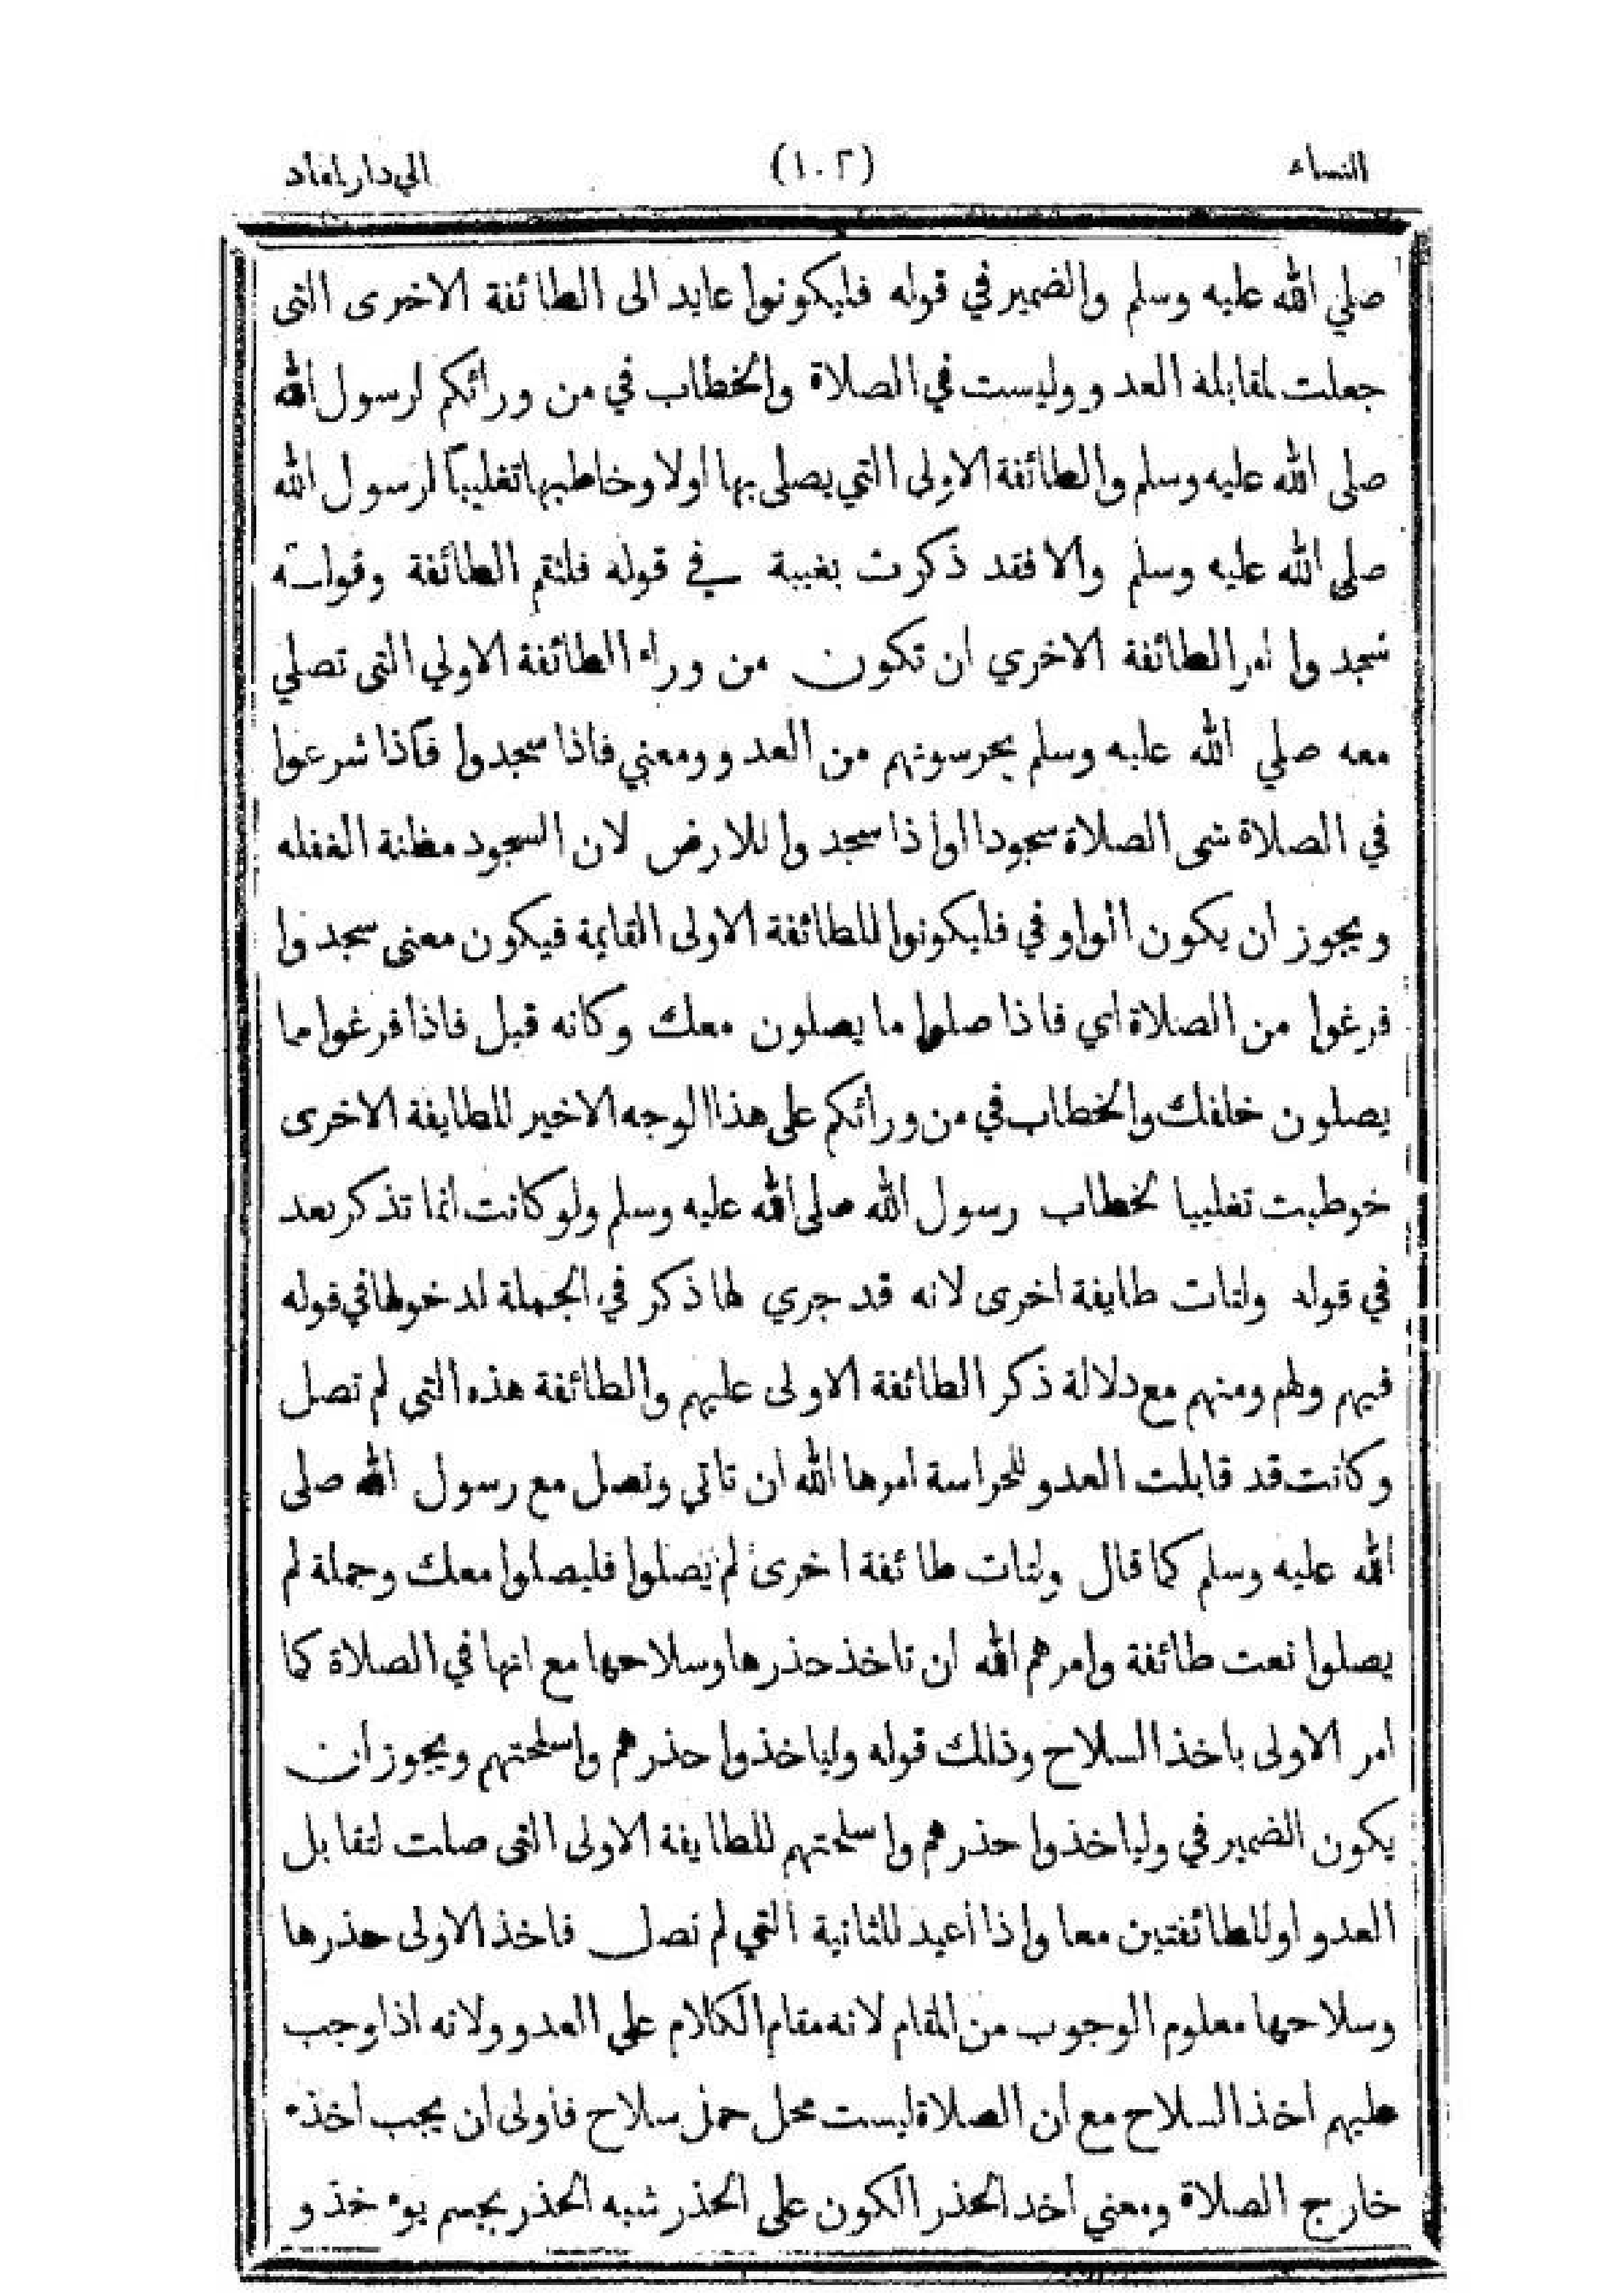 النساء (١٠٢) الي دار المعاد
صلي الله عليه وسلم والضمير في قوله فليكونوا عايد الى الطائفة الاخرى التى
جعلت لمقابلة العدو وليست في الصلاة والخطاب في من ورائكم لرسول الله
صلى الله عليه وسلم والطائفة الاولى التي يصلى بها اولا وخاطبها تغليباً لرسول الله
صلى الله عليه وسلم والا فقد ذكرت بغيبة في قوله فلتقم الطائفة وقوله
سجدوا امر الطائفة الاخري ان تكون من وراء الطائفة الاولي التى تصلي
معه صلي الله عليه وسلم يحرسونهم من العدو ومعني فاذا سجدوا فاذا شرعوا
في الصلاة سمى الصلاة سجودا اواذا سجدوا للارض لان السجود مظنة الغفله
ويجوز ان يكون الواو في فليكونوا للطائفة الاولى القايمة فيكون معنى سجدوا
فرغوا من الصلاة اي فاذا صلوا ما يصلون معك وكانه قيل فاذا فرغوا مما
يصلون خلفك والخطاب في من ورائكم على هذا الوجه الاخير للطايفة الاخرى
خوطبت تغليبا لخطاب رسول الله صلى الله عليه وسلم ولو كانت انما تذكر بعد
في قوله ولتات طايفة اخرى لانه قد جري لها ذكر في الجملة لدخولها في قوله
فيهم ولهم ومنهم مع دلالة ذكر الطائفة الاولى عليهم والطائفة هذه التي لم تصل
وكانت قد قابلت العدو للحراسة امرها الله ان تاتي وتصل مع رسول الله صلى
الله عليه وسلم كما قال ولتات طائفة اخرى لم يصلوا فليصلوا معك وجملة لم
يصلوا نعت طائفة وامرهم الله ان تاخذ حذرها وسلاحها مع انها في الصلاة كما
امر الاولى باخذ السلاح وذلك قوله ولياخذوا حذرهم واسلحتهم ويجوز ان
يكون الضمير في ولياخذوا حذرهم واسلحتهم للطايفة الاولى التى صلت لتقابل
العدو اوللطائفتين معا واذا أعيد للثانية التي لم تصل فاخذ الاولى حذرها
وسلاحها معلوم الوجوب من المقام لانه مقام الكلام على العدو ولانه اذا وجب
عليهم أخذ السلاح مع ان الصلاة ليست محل حمل سلاح فأولى ان يجب أخذه
خارج الصلاة ومعني اخد الحذر الكون على الحذر شبه الحذر بجسم يوء خذ و